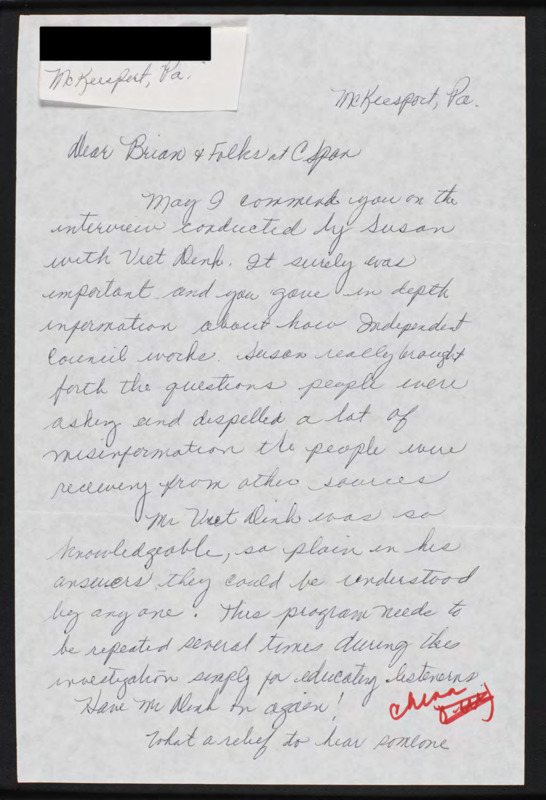 McKeesport, Pa.
McKeesport, Pa.
Dear Brian & Folks at C Span
May I commend you on the
interview conducted by Susan
with Viet Dinh. It surely was
important and you gave in depth
information about how Independent
Council works. Susan really brought
forth the questions people were
asking and dispelled a lot of
misinformation the people were
receiving from other sources
Mr Viet Dinh was so
knowledgeable, so plain in his
answers they could be understood
by any one. This program needs to
be repeated several times during this
investigation simply for educating listeners.
Have Mr Dinh on again!
China
What a relief to hear someone